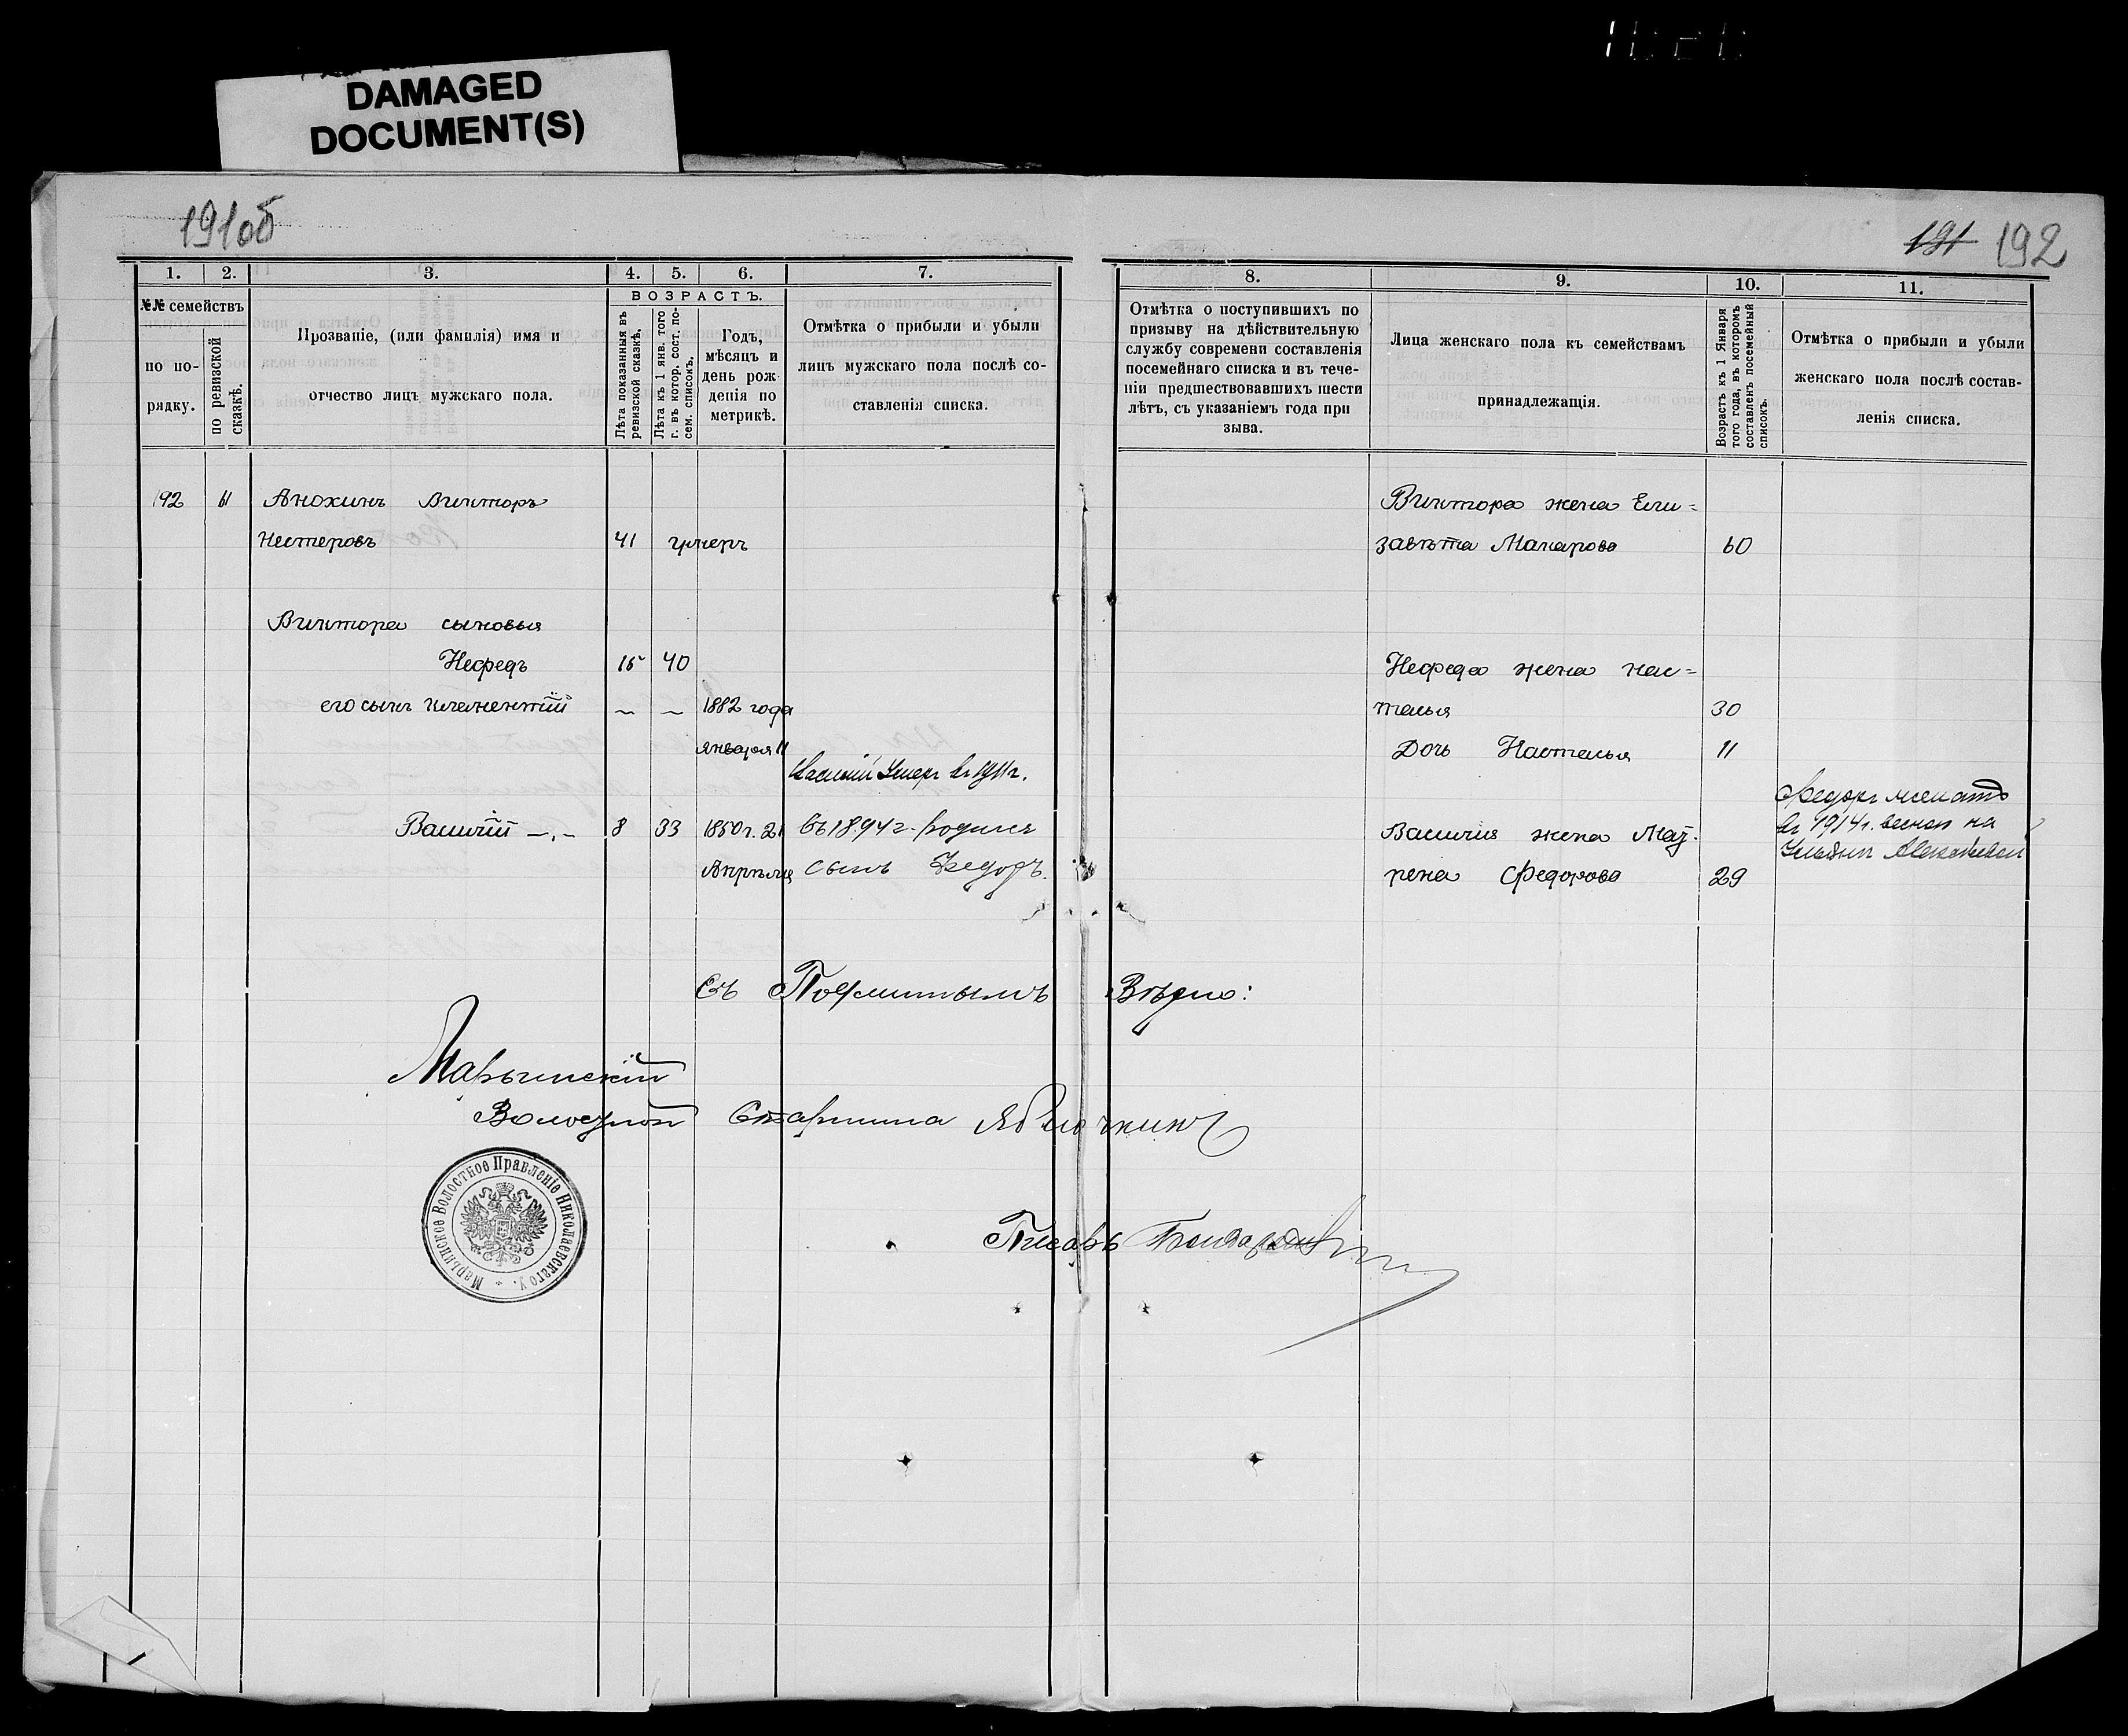 DAMAGED
DOCUMENT(S)
191об
191 192
1. 2. 3. 4. 5. 6. 7.
№№ семействъ
по по-
рядку.
по ревизской
сказкѣ.
Прозваніе, (или фамилія) имя и
отчество лицъ мужскаго пола.
ВОЗРАСТЪ.
Лѣта показанныя въ
ревизской сказкѣ,
Лѣта къ 1 янв. того
г. въ котор. сост. по-
сем. списокъ.
Годъ,
мѣсяцъ и
день рож
денія по
метрикѣ.
Отмѣтка о прибыли и убыли
лицъ мужскаго пола послѣ со-
ставленія списка.
8. 9. 10. 11.
Отмѣтка о поступившихъ по
призыву на дѣйствительную
службу современи составленія
посемейнаго списка и въ тече-
ніи предшествовавшихъ шести
лѣтъ, съ указаніемъ года при
зыва.
Лица женскаго пола къ семействамъ
принадлежащія.
Возрастъ къ 1 Января
того года, въ которомъ
составленъ посемейный
списокъ.
Отмѣтка о прибыли и убыли
женскаго пола послѣ состав-
ленія списка.
192 61 Анохинъ Викторъ
Нестеровъ 41 умеръ
Виктора сыновья
Нефедъ 15 40
его сынъ Климентій 1882 года
января 11
Василій Умеръ въ 1911 г.
Василій 8 33 1850 г. 21 въ 1894 г. родился
Апрѣля сынъ Федоръ.
Виктора жена Ели=
завѣта Макарова 60
Нефеда жена На=
талья 30
Дочь Настасья 11
Федоръ женатъ
въ 1914 г. весной на
Василія жена Мав-
рена Федорова 29
Съ Подлиннымъ Вѣрно:
Марьинскій
Волостной Старшина Яблочкинъ
Марьинское Волостное Правленіе Николаевскаго у.
Писарь